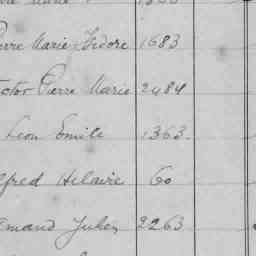 Pierre Marie Isidore 1683
Victor Pierre Marie 2484
Leon Emile 1363
Alfred Hilaire 60
Armand Jules 2263